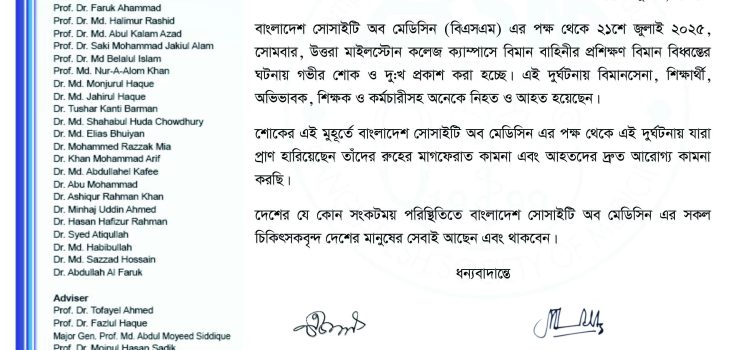 Prof. Dr. Faruk Ahammad
Prof. Dr. Md. Halimur Rashid
Prof. Dr. Md. Abul Kalam Azad
Prof. Dr. Saki Mohammad Jakiul Alam
Prof. Dr. Md Belalul Islam
Prof. Md. Nur-A-Alom Khan
Dr. Md. Monjurul Haque
Dr. Md. Jahirul Haque
Dr. Tushar Kanti Barman
Dr. Md. Shahabul Huda Chowdhury
Dr. Md. Elias Bhuiyan
Dr. Mohammed Razzak Mia
Dr. Khan Mohammad Arif
Dr. Md. Abdullahel Kafee
Dr. Abu Mohammad
Dr. Ashiqur Rahman Khan
Dr. Minhaj Uddin Ahmed
Dr. Hasan Hafizur Rahman
Dr. Syed Atiqullah
Dr. Md. Habibullah
Dr. Md. Sazzad Hossain
Dr. Abdullah Al Faruk
Adviser
Prof. Dr. Tofayel Ahmed
Prof. Dr. Fazlul Haque
Major Gen. Prof. Md. Abdul Moyeed Siddique
Prof. Dr. Moinul Hasan Sadik
বাংলাদেশ সোসাইটি অব মেডিসিন (বিএসএম) এর পক্ষ থেকে ২১শে জুলাই ২০২৫,
সোমবার, উত্তরা মাইলস্টোন কলেজ ক্যাম্পাসে বিমান বাহিনীর প্রশিক্ষণ বিমান বিধ্বস্তের
ঘটনায় গভীর শোক ও দু:খ প্রকাশ করা হচ্ছে। এই দুর্ঘটনায় বিমানসেনা, শিক্ষার্থী,
অভিভাবক, শিক্ষক ও কর্মচারীসহ অনেকে নিহত ও আহত হয়েছেন।
শোকের এই মুহূর্তে বাংলাদেশ সোসাইটি অব মেডিসিন এর পক্ষ থেকে এই দুর্ঘটনায় যারা
প্রাণ হারিয়েছেন তাঁদের রুহের মাগফেরাত কামনা এবং আহতদের দ্রুত আরোগ্য কামনা
করছি।
দেশের যে কোন সংকটময় পরিস্থিতিতে বাংলাদেশ সোসাইটি অব মেডিসিন এর সকল
চিকিৎসকবৃন্দ দেশের মানুষের সেবাই আছেন এবং থাকবেন।
ধন্যবাদান্তে